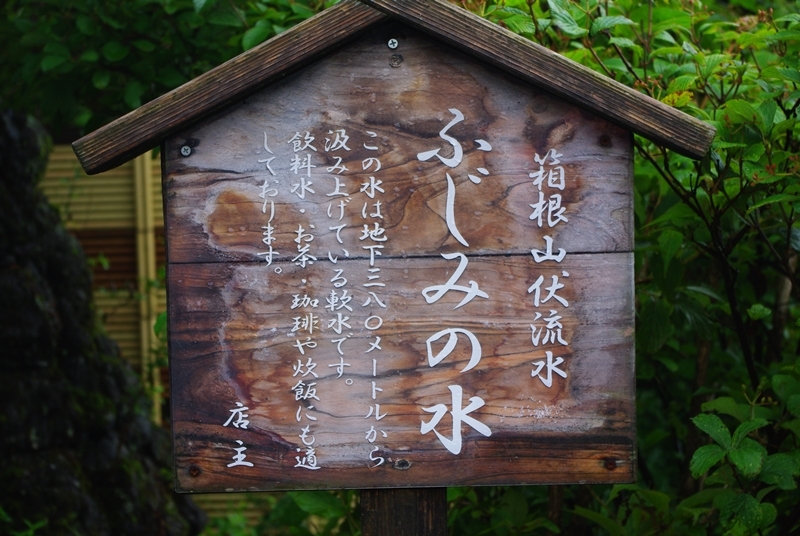 箱根山伏流水
ふじみの水
この水は地下三八〇メートルから
汲み上げている軟水です。
飲料水・お茶・珈琲や炊飯にも適
しております。
店主